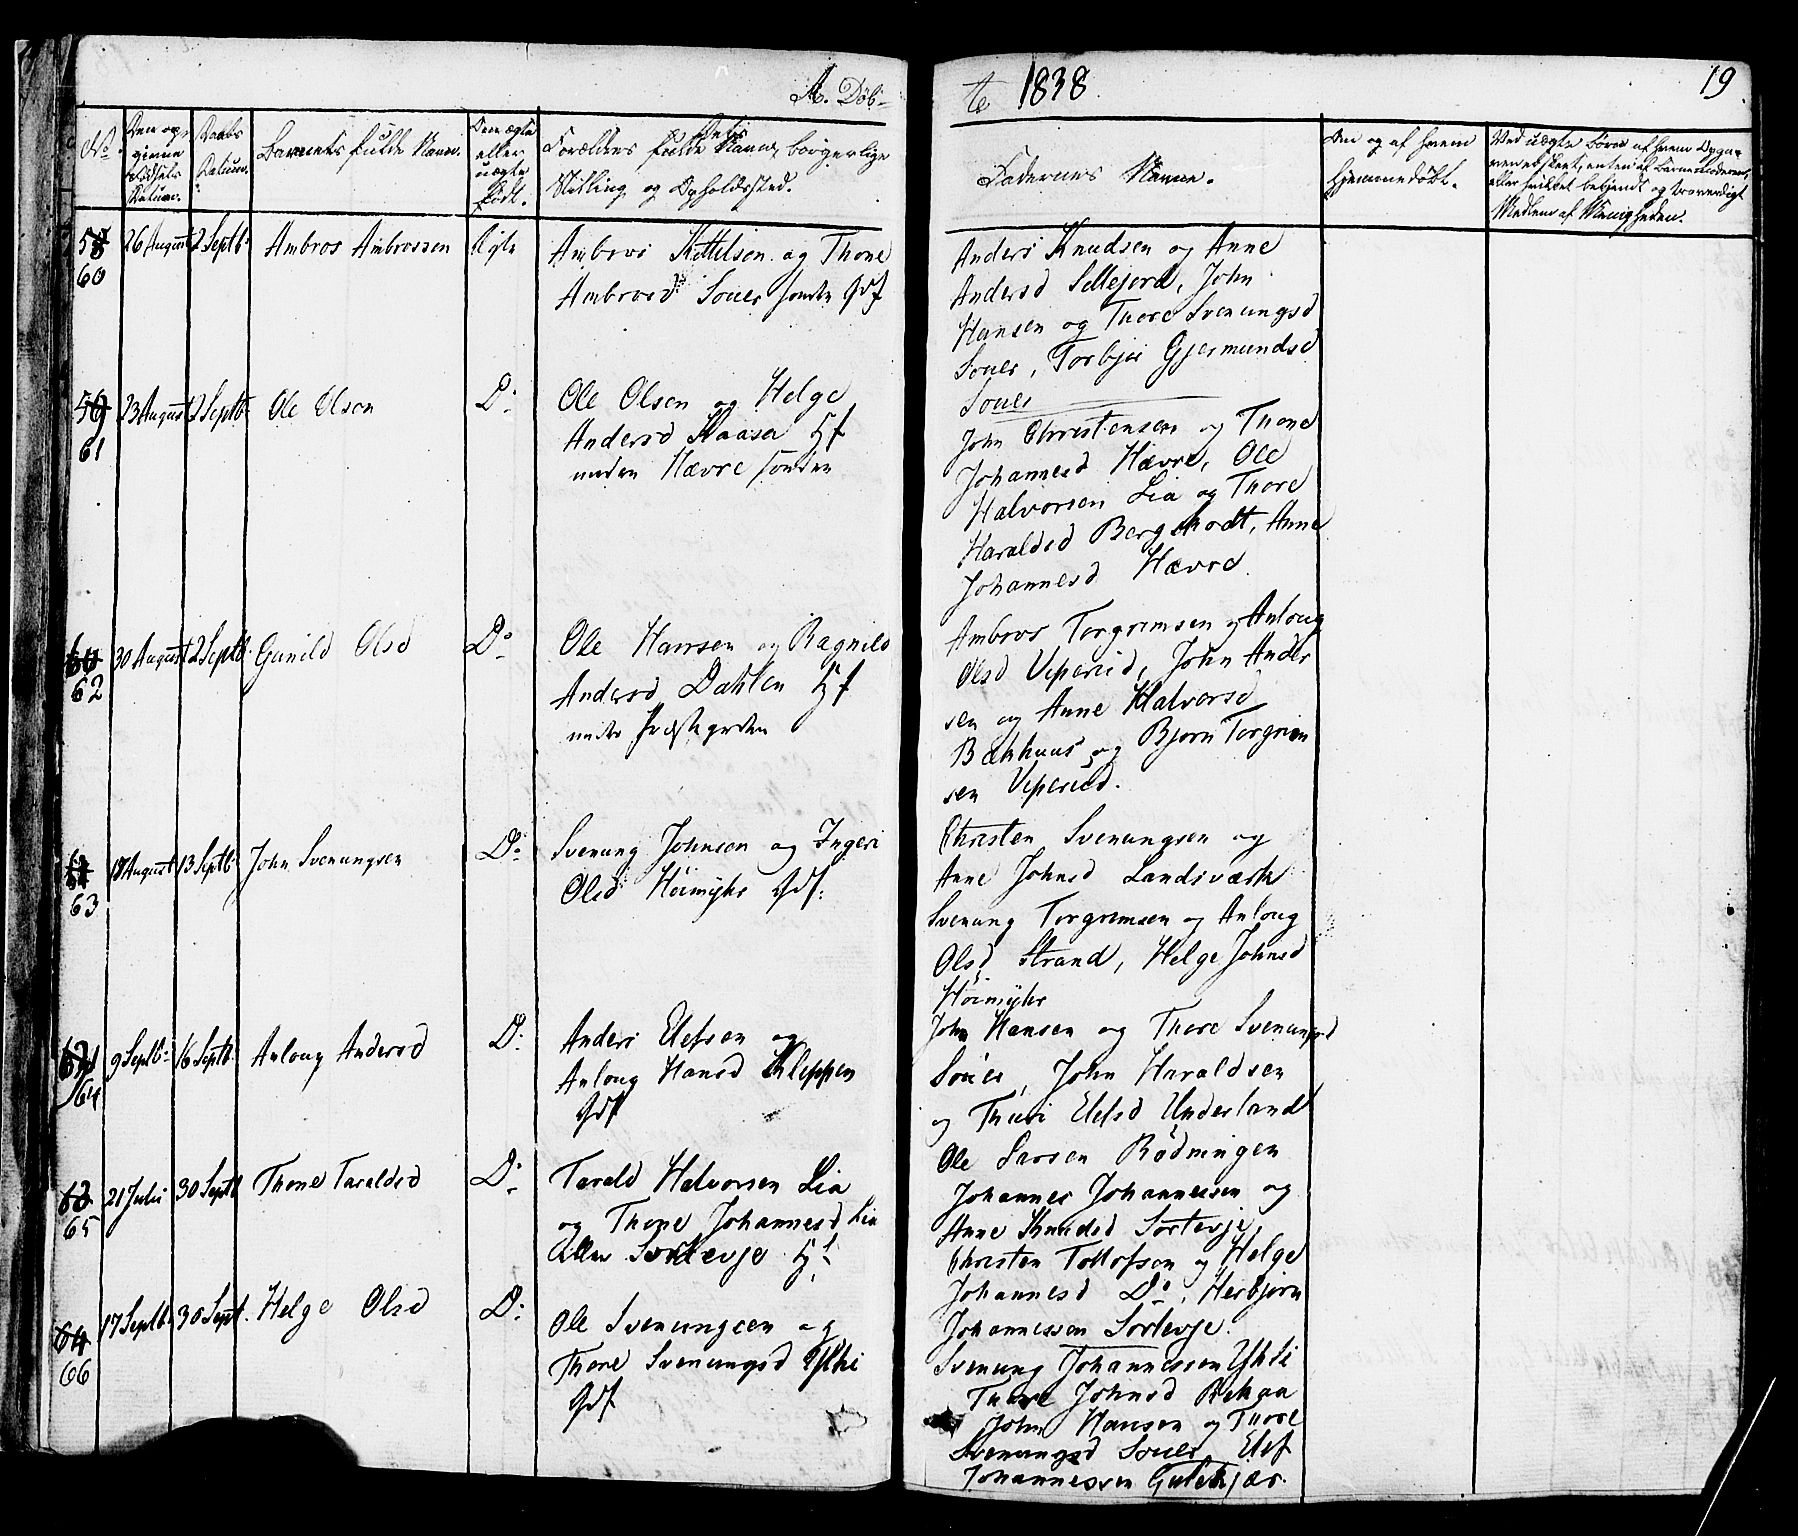 A. Døb-
te 1838
19
No
Den op-
givne
Fødsels
Datum.
Daabs
Datum.
Barnets fulde Navn.
Om ægte
eller
uægte
født.
Forældres fulde Navne, borgerlige
Stilling og Opholdssted.
Faderenes Navne.
Om og af hvem
hjemmedøbt.
Ved uægte Børn af hvem Opga-
ven er skeet, enten af Barnemoderen
eller hvilket bekjendt og troværdigt
Medlem af Menigheden.
58
60
26 August
2 Septb:
Ambros Ambrossen
Ægte
Ambros Kittilsen og Thone
Ambrosd Soues søndre Gdf
Anders Knudsen og Anne
Andersd Sillejord, John
Hansen og Thore Svenungsd
Soues, Torbjør Gjermundsd
Soues
59
61
23 August
2 Septb
Ole Olsen
Do
Ole Olsen og Helge
Andersd Haasa Hf
under Hævre sønden
John Christensen og Thone
Johannesd Hævre, Ole
Halvorsen Lia og Thore
Haraldsd Bergstrodt, Anne
Johannesd Hævre
60
62
30 August
2 Septb.
Gunild Olsd
Do
Ole Hansen og Ragnild
Andersd Dahlen Hf
under Præstegarden
Ambros Torgrimsen og Anlaug
Olsd Viperud, John Ander
sen og Anne Halvorsd
Bakhuus og Bjorn Torgrim
sen Viperud.
61
63
18 August
13 Septb:
John Svenungsen
Do
Svenung Johnsen og Ingeri
Olsd Høimyhr Gdf.
Christen Svenungsen og
Anne Johnsd Landsværk
Svenung Torgrimsen og Anloug
Olsd Strand, Helge Johnsd
Høimyhr
62
64
9 Septb:
16 Septb
Anloug Andersd
Do
Anders Elefsen og
Anloug Hansd Kleppen
Gdf
John Hansen og Thore Svenungsd
Soues, John Haraldsen
og Thuri Elefsd Underland
Ole Larsen Rødningen
63
65
21 Juli
30 Septb
Thone Taraldsd
Do
Tarald Halvorsen Lia
og Thone Johannesd Lia
eller Sortevje Hf
Johannes Johannessen og
Anne Knudsd Sortevje,
Christen Tollofsen og Helge
Johannesd Do, Herbjørn
Johannessen Sortevje.
64
66
17 Septb:
30 Sept.
Helge Olsd
Do
Ole Svenungsen og
Thore Svenungsd Yhli
Gdf
Svenung Johannessen Yhli
Thore Johnsd Bekaa
John Hansen og Thore
Svenungsd Soues, Elef
Johannessen Gulekjær.